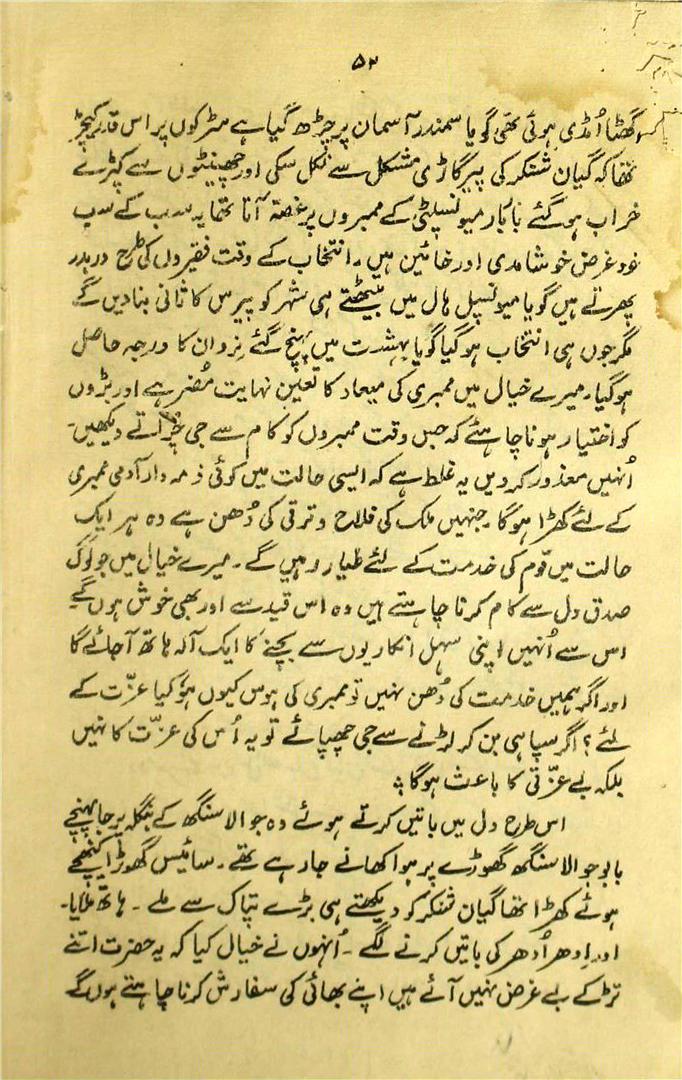 ۵۲
گھٹا اُمڈی ہوئی تھی گویا سمندر آسمان پر چڑھ گیا ہے سڑکوں پر اس قدر کیچڑ
تھا کہ گیان شنکر کی پیر گاڑی مشکل سے نکل سکی اور چھینٹوں سے کپڑے
خراب ہو گئے بار بار میونسپلٹی کے ممبروں پر غصّہ آتا تھا یہ سب کے سب
خود غرض خوشامدی اور خائین ہیں۔ انتخاب کے وقت فقیروں کی طرح در بدر
پھرتے ہیں گویا میونسپل ہال میں بیٹھتے ہی شہر کو پیرس کا ثانی بنا دیں گے
مگر جوں ہی انتخاب ہو گیا گویا بہشت میں پہنچ گئے نزوان کا درجہ حاصل
ہو گیا۔ میرے خیال میں ممبری کی میعاد کا تعین نہایت مُضر ہے اور بڑوں
کو اختیار ہونا چاہئے کہ جس وقت ممبروں کو کام سے جی چُراتے دیکھیں۔
اُنہیں معذور کر دیں یہ غلط ہے کہ ایسی حالت میں کوئی ذمہ دار آدمی ممبری
کے لئے کھڑا ہوگا۔ جنہیں ملک کی فلاح و ترقی کی دُھن ہے وہ ہر ایک
حالت میں قوم کی خدمت کے لئے طیار رہیں گے۔ میرے خیال میں جو لوگ
صدق دل سے کام کرنا چاہتے ہیں وہ اس قید سے اور بھی خوش ہوں گے
اس سے اُنہیں اپنی سہل انکاریوں سے بچنے کا ایک آلہ ہاتھ آ جائے گا
اور اگر ہمیں خدمت کی دُھن نہیں تو ممبری کی ہوس کیوں ہو کیا عزّت کے
لئے؟ اگر سپاہی بن کر لڑنے سے جی چھپائے تو یہ اُس کی عزّت کا نہیں
بلکہ بے عزّتی کا باعث ہوگا ؞
اس طرح دل میں باتیں کرتے ہوئے وہ جوالا سنگھ کے بنگلہ پر جا پہنچے
بابو جوالا سنگھ گھوڑے پر ہوا کھانے جا رہے تھے۔ سائیس گھوڑا کھینچے
ہوئے کھڑا تھا گیان شنکر کو دیکھتے ہی بڑے تپاک سے ملے۔ ہاتھ ملایا۔
اور اِدھر اُدھر کی باتیں کرنے لگے۔ اُنہوں نے خیال کیا کہ یہ حضرت اتنے
تڑکے بے غرض نہیں آئے ہیں اپنے بھائی کی سفارش کرنا چاہتے ہوں گے